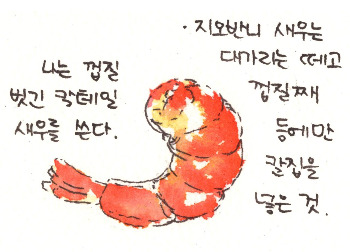 나는 껍질
벗긴 칵테일
새우를 쓴다.
· 지오반니 새우는
대가리는 떼고
껍질째
등에만
칼집을
넣은 것.